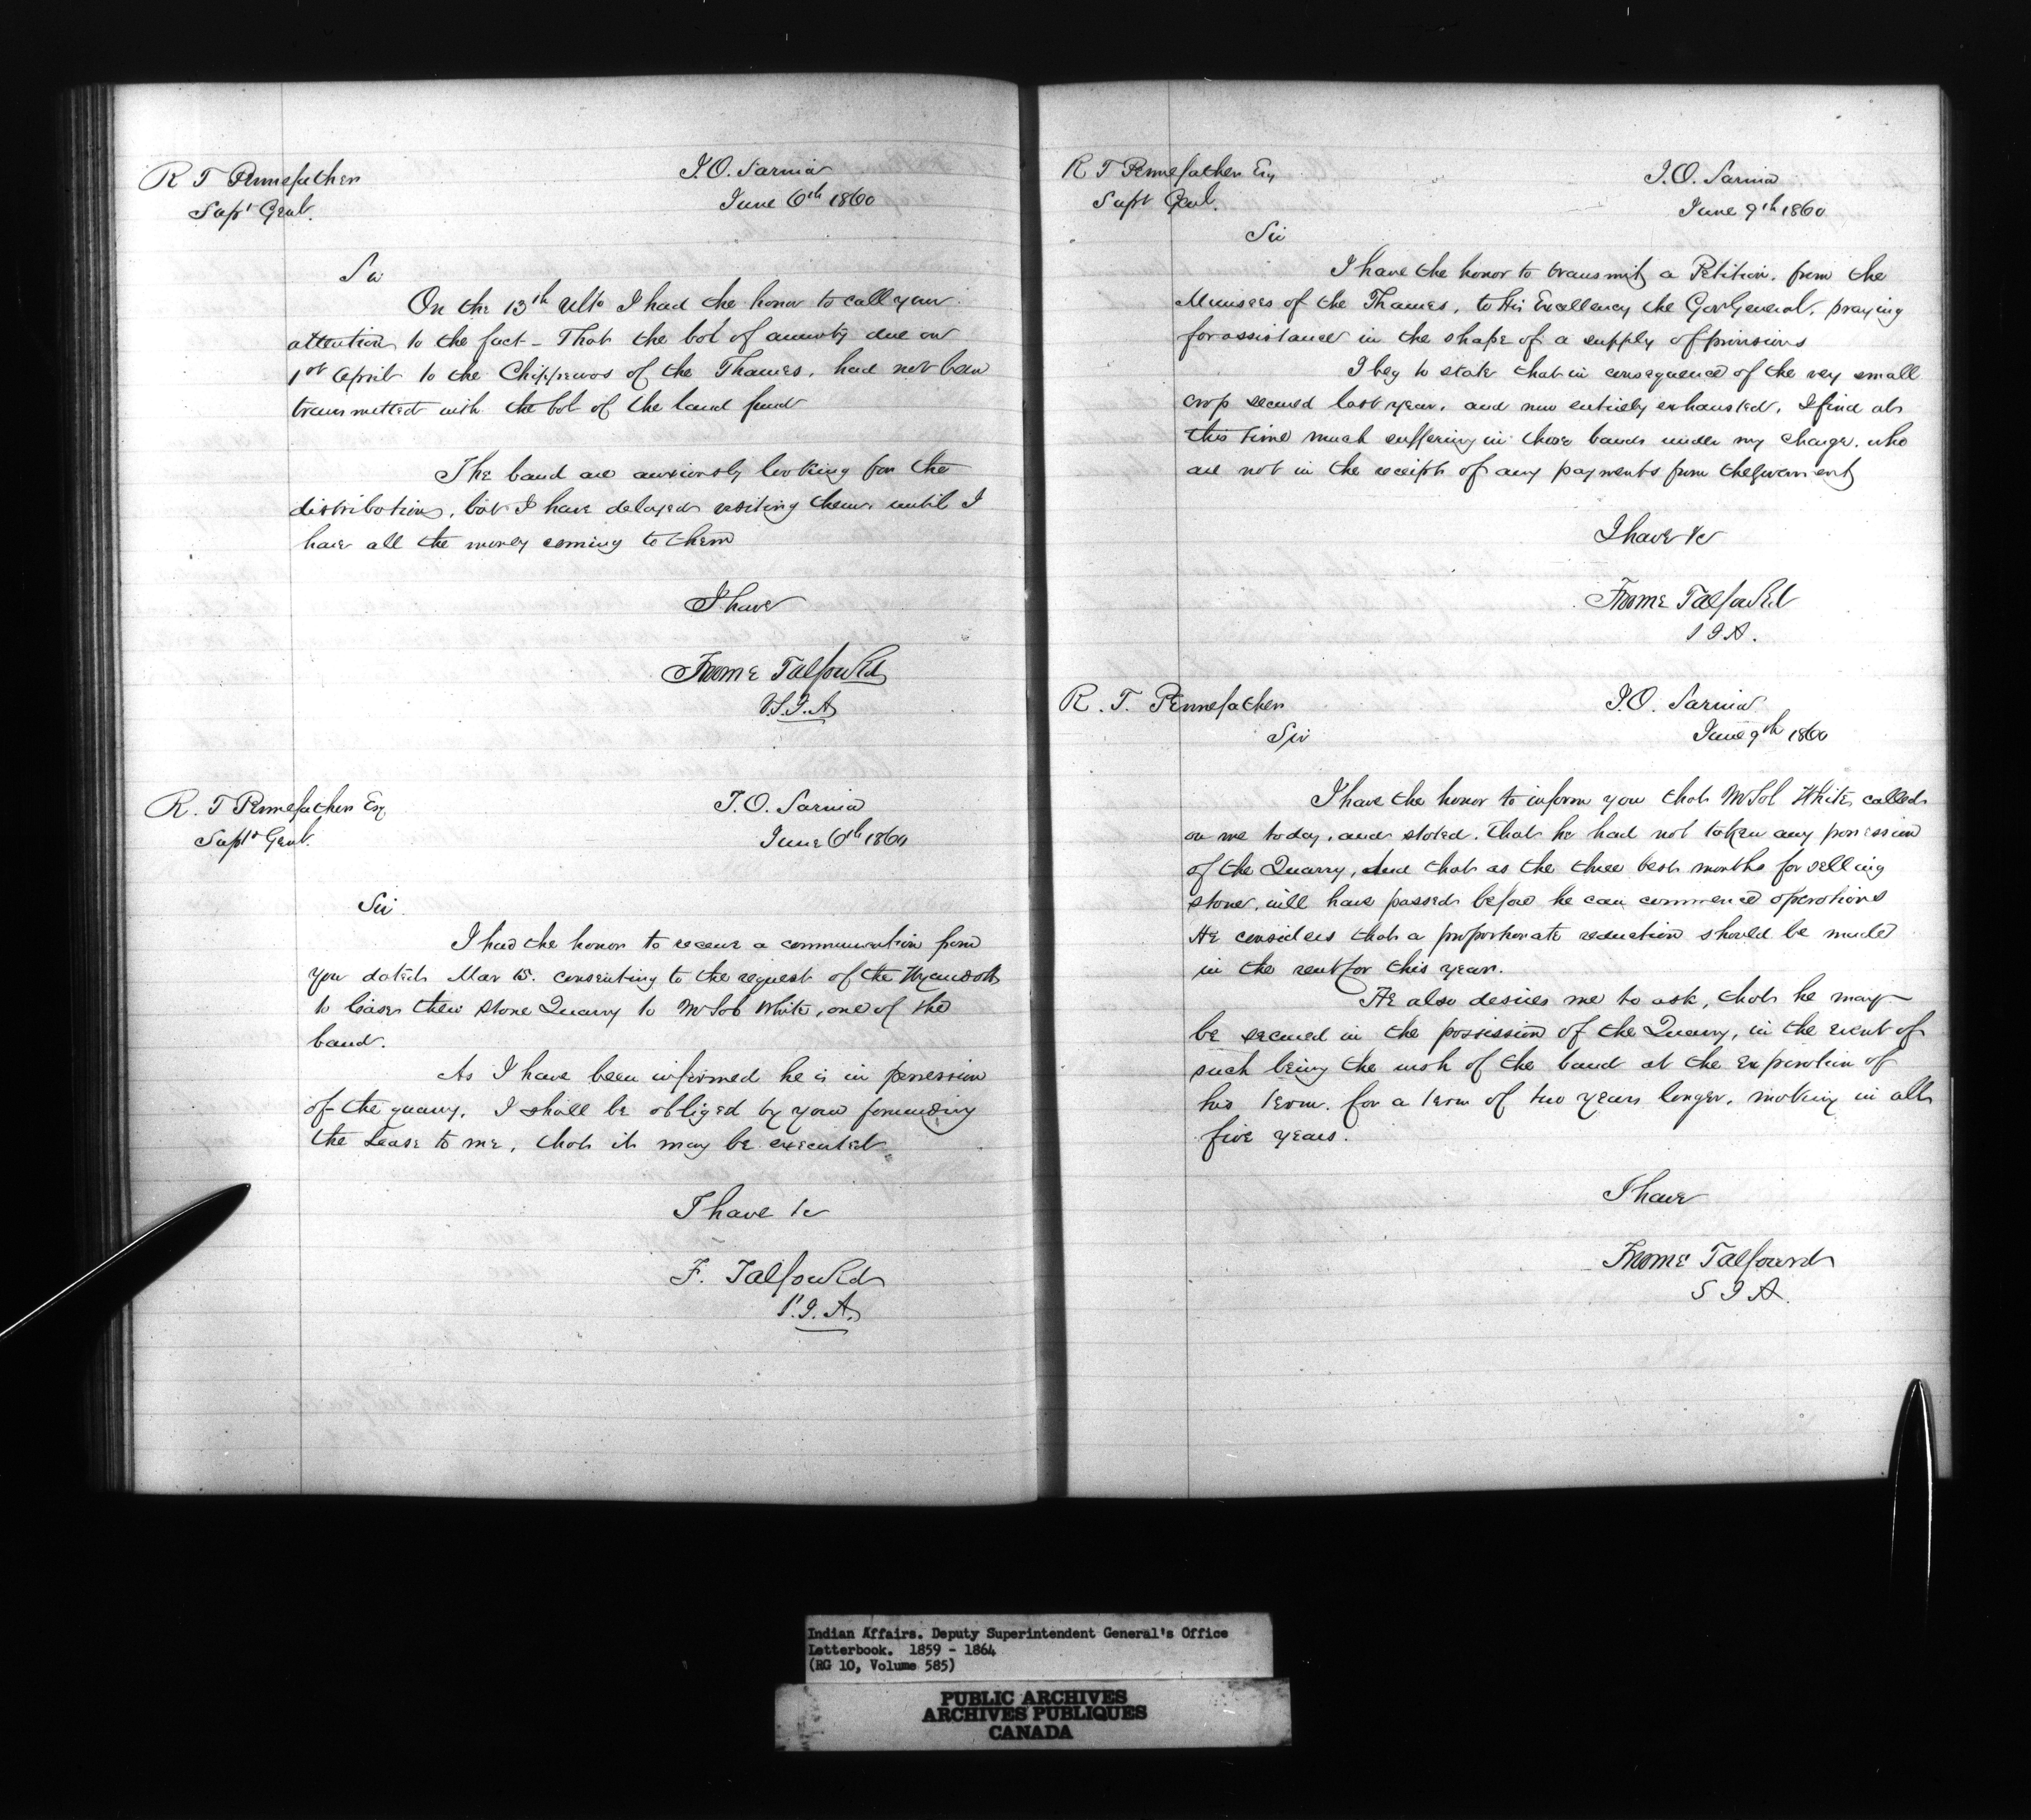 R T Pennefather
Supt Genl.
I.O. Sarnia
June 6th 1860
Sir
On the 13th Ulto I had the honor to call your
attention to the fact - That the bal of annuity due on
1st April to the Chippewas of the Thames, had not been
transmitted with the bal of the land fund
The band are anxiously looking for the
distribution, but I have delayed visiting them until I
have all the money coming to them
I have
Froome Talfourd
V.S.I.A
R. T Pennefather Esq
Supt Genl.
I.O. Sarnia
June 6th 1860
Sir
I had the honor to receive a communication from
you dated Mar 15. consenting to the request of the Wyandotts
to lease their Stone Quarry to Mr Sol White, one of the
band.
As I have been informed he is in possession
of the quarry, I shall be obliged by your forwarding
the Lease to me, that it may be executed
I have &c
F. Talfourd
S.I.A.
R T Pennefather Esq
Supt Genl.
I.O. Sarnia
June 9th 1860
Sir
I have the honor to transmit a Petition, from the
Munsees of the Thames, to His Excellency the Gov General, praying
for assistance in the shape of a supply of provisions
I beg to state that in consequence of the very small
crop secured last year, and now entirely exhausted, I find at
this time much suffering in those bands under my charge, who
are not in the receipt of any payments from the Government
I have &c
Froome Talfourd
S I A.
R. T. Pennefather
Sir
I.O. Sarnia
June 9th 1860
I have the honor to inform you that Mr Sol White, called
on me today, and stated, that he had not taken any possession
of the Quarry, and that as the three best months for selling
stone, will have passed before he can commence operations
He considers that a proportionate reduction should be made
in the rent for this year.
He also desires me to ask, that he may
be secured in the possession of the Quarry, in the event of
such being the wish of the band at the expiration of
his term, for a term of two years longer, making in all
five years.
I have
Froome Talfourd
S I A.
Indian Affairs. Deputy Superintendent General's Office
Letterbook. 1859 - 1864
(RG 10, Volume 585)
PUBLIC ARCHIVES
ARCHIVES PUBLIQUES
CANADA